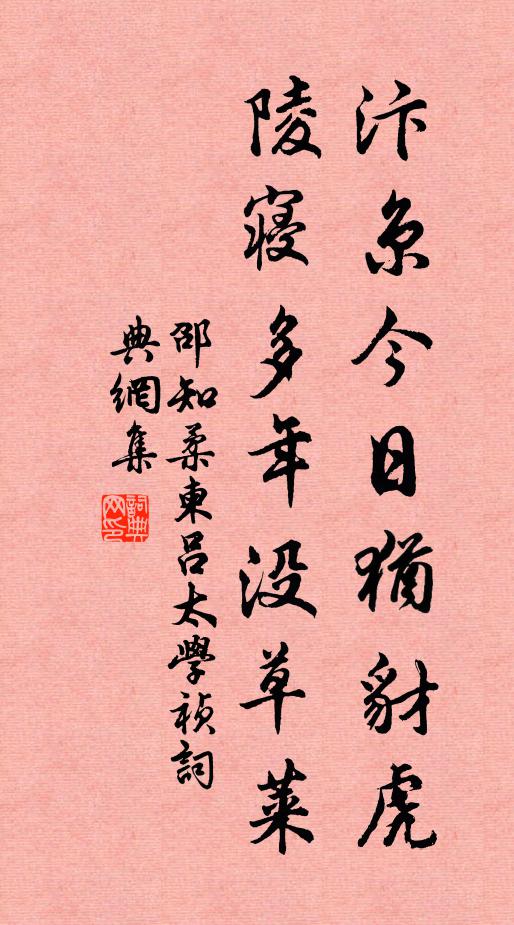 汴京今日猶豺虎
陵寢多年没草萊
邵知柔東呂太學禎詞
典網集
詞典
网印